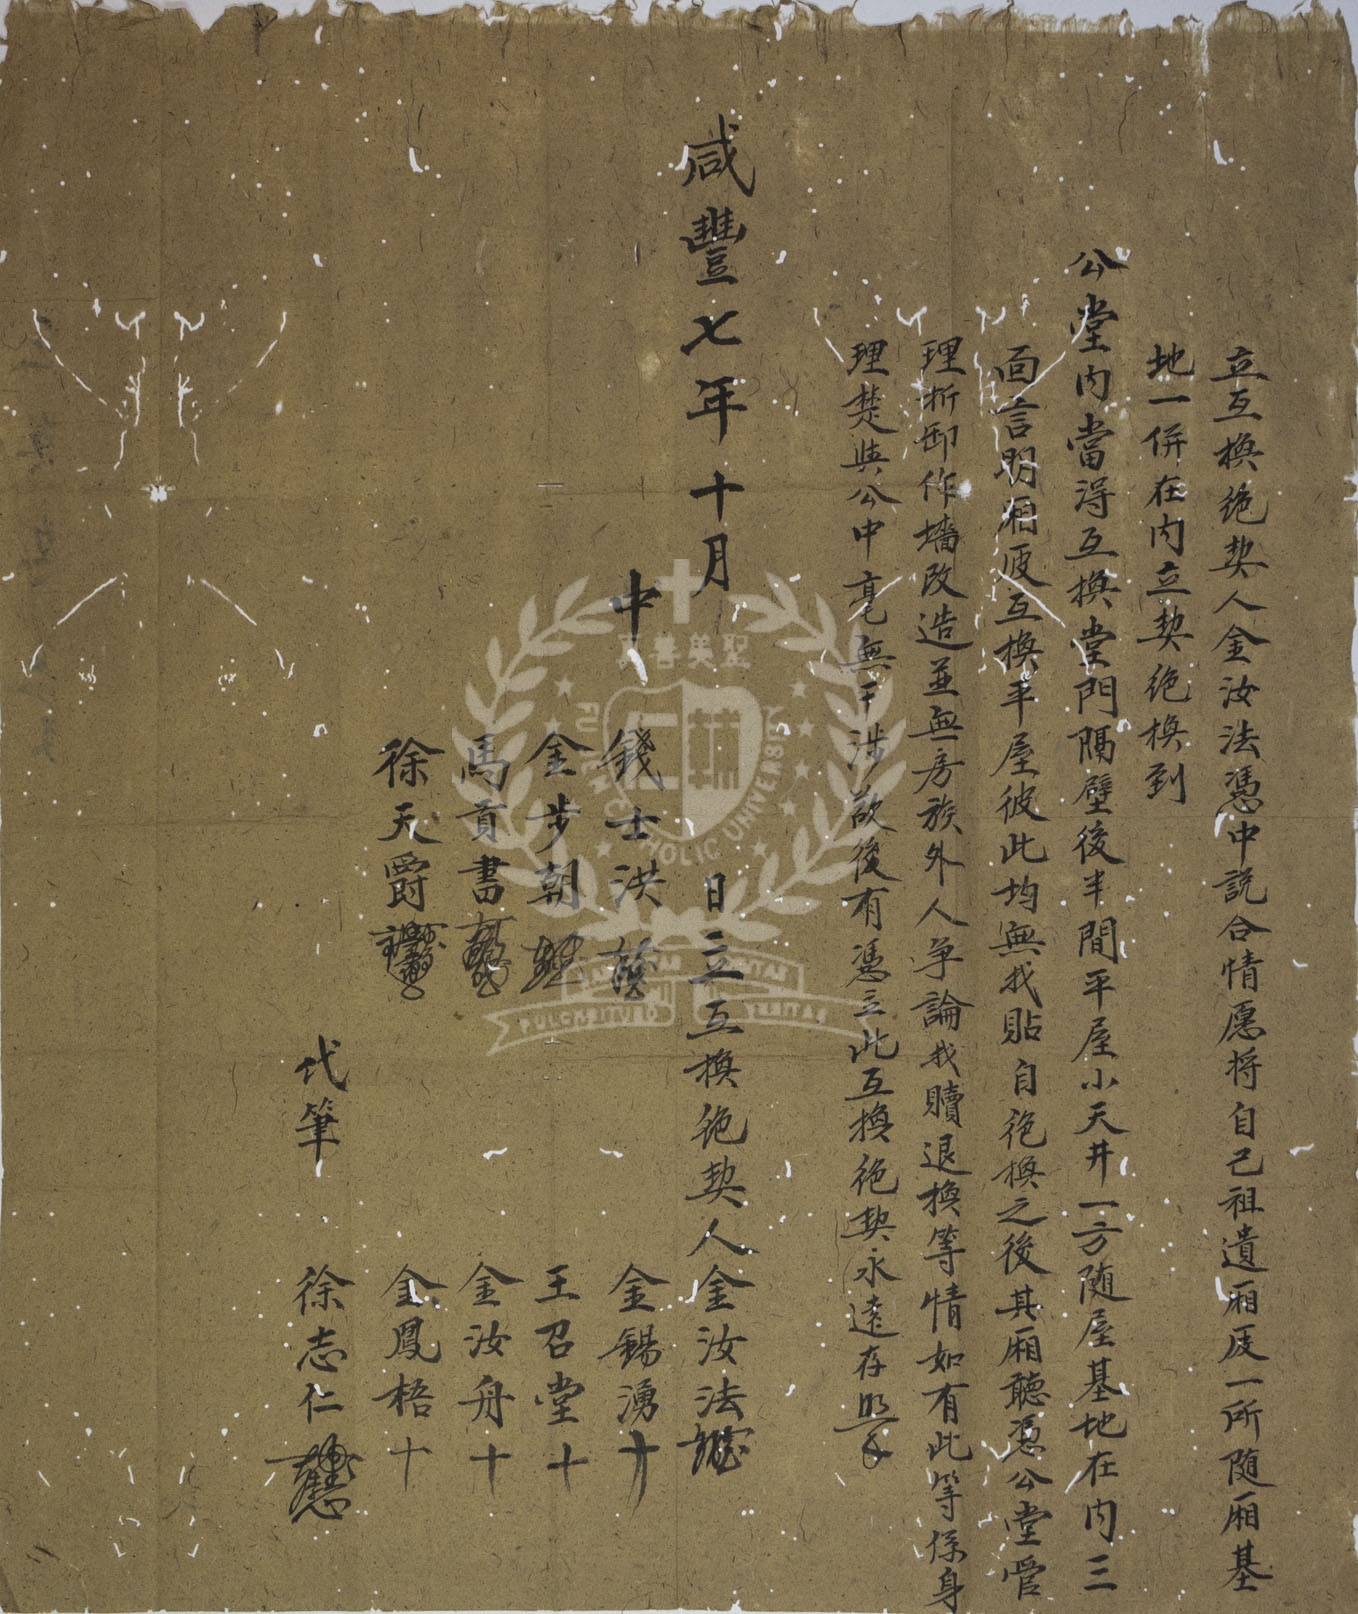 立互換絶契人金汝法憑中説合情愿將自己祖遺廂庋一所随廂基
地一併在内立契絶換到
公堂内當淂互換堂門隔壁後半間平屋小天井一方随屋基地在内三
面言明廂庋互換平屋彼此均無找貼自絶換之後其廂聽憑公堂管
理折卸作墻改造並無房族外人争論找贖退換等情如有此等係身
理楚與公中毫無干涉欲後有憑立此互換絶契永遠存照
咸豐七年十月 日立互換絶契人金汝法
金錫湧十
中 錢士洪
王召堂十
金步朝
金汝舟十
馬貢書
金鳳梧十
徐天爵
代筆 徐志仁
FU JEN CATHOLIC UNIVERSITY
真善美聖